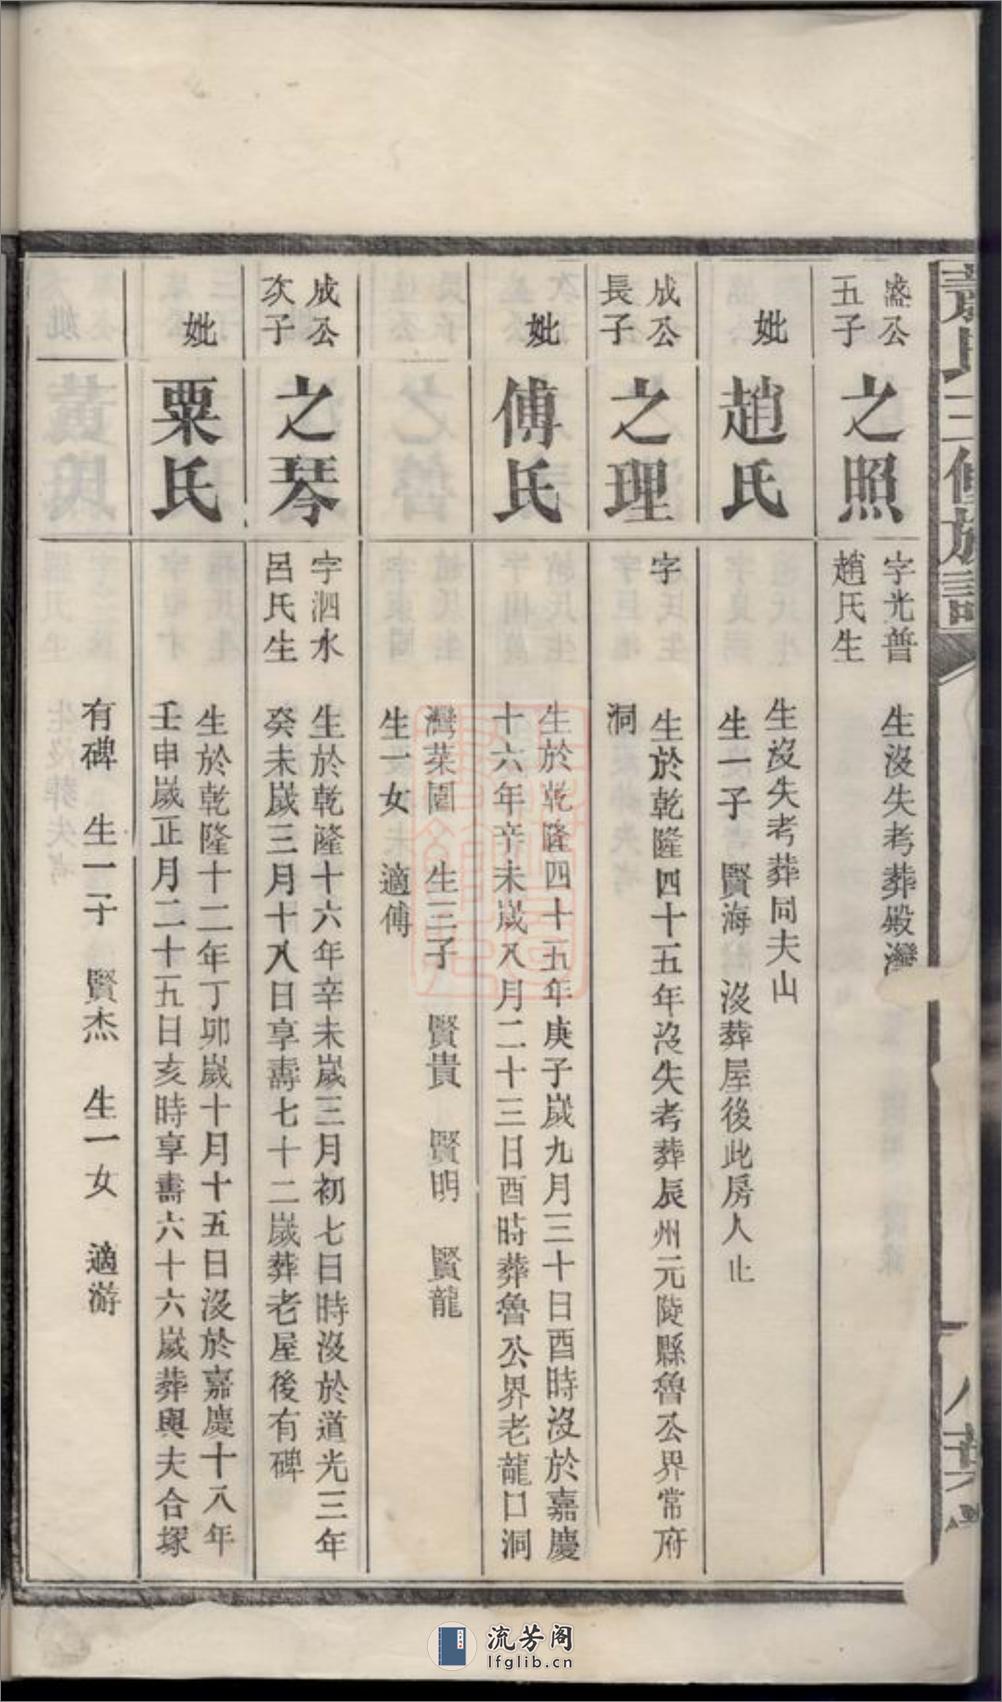 袁氏三修族譜
盛公
五子
之照
字光普
趙氏生
生沒失考葬殿灣
妣
趙氏
生沒失考葬同夫山
生一子 賢海 沒葬屋後此房人止
成公
長子
之理
字
生於乾隆四十五年沒失考葬辰州元陵縣魯公界常府
洞
妣
傅氏
生於乾隆四十五年庚子歲九月三十日酉時沒於嘉慶
十六年辛未歲八月二十三日酉時葬魯公界老龍口洞
灣菜園 生三子 賢貴 賢明 賢龍
生一女 適傅
成公
次子
之琴
字泗水
呂氏生
生於乾隆十六年辛未歲三月初七日時沒於道光三年
癸未歲三月十八日享壽七十二歲葬老屋後有碑
妣
粟氏
生於乾隆十二年丁卯歲十月十五日沒於嘉慶十八年
壬申歲正月二十五日亥時享壽六十六歲葬與夫合塚
有碑 生一子 賢杰 生一女 適游
流芳阁
lfglib.cn